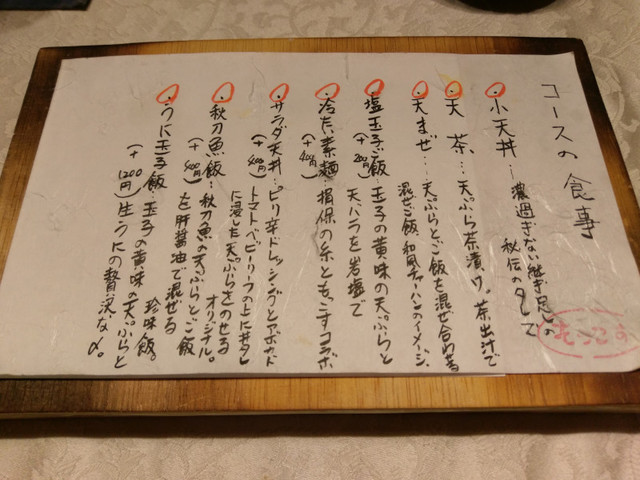 コースの食事
・小天丼…濃過ぎない継ぎ足しの
秘伝のタレで
・天茶…天ぷら茶漬け。茶出汁で
・天まぜ…天ぷらとご飯を混ぜ合わせる
混ぜご飯、和風チャーハンのイメージ、
・塩玉子ご飯 玉子の黄味の天ぷらと
(+200円) 天バラを岩塩で
・冷たい素麺…揖保の糸ともっこすコラボ
(+400円)
・サラダ天丼…ピリ辛ドレッシングとアボカド
(+400円) トマトベビーリーフの上に丼タレ
に浸した天ぷらをのせる
オリジナル。
・秋刀魚飯…秋刀魚の天ぷらとご飯
(+400円) を肝醤油で混ぜる
珍味飯。
・うに玉子飯 玉子の黄味の天ぷらと
(+1200円) 生うにの贅沢な〆。
もっこす